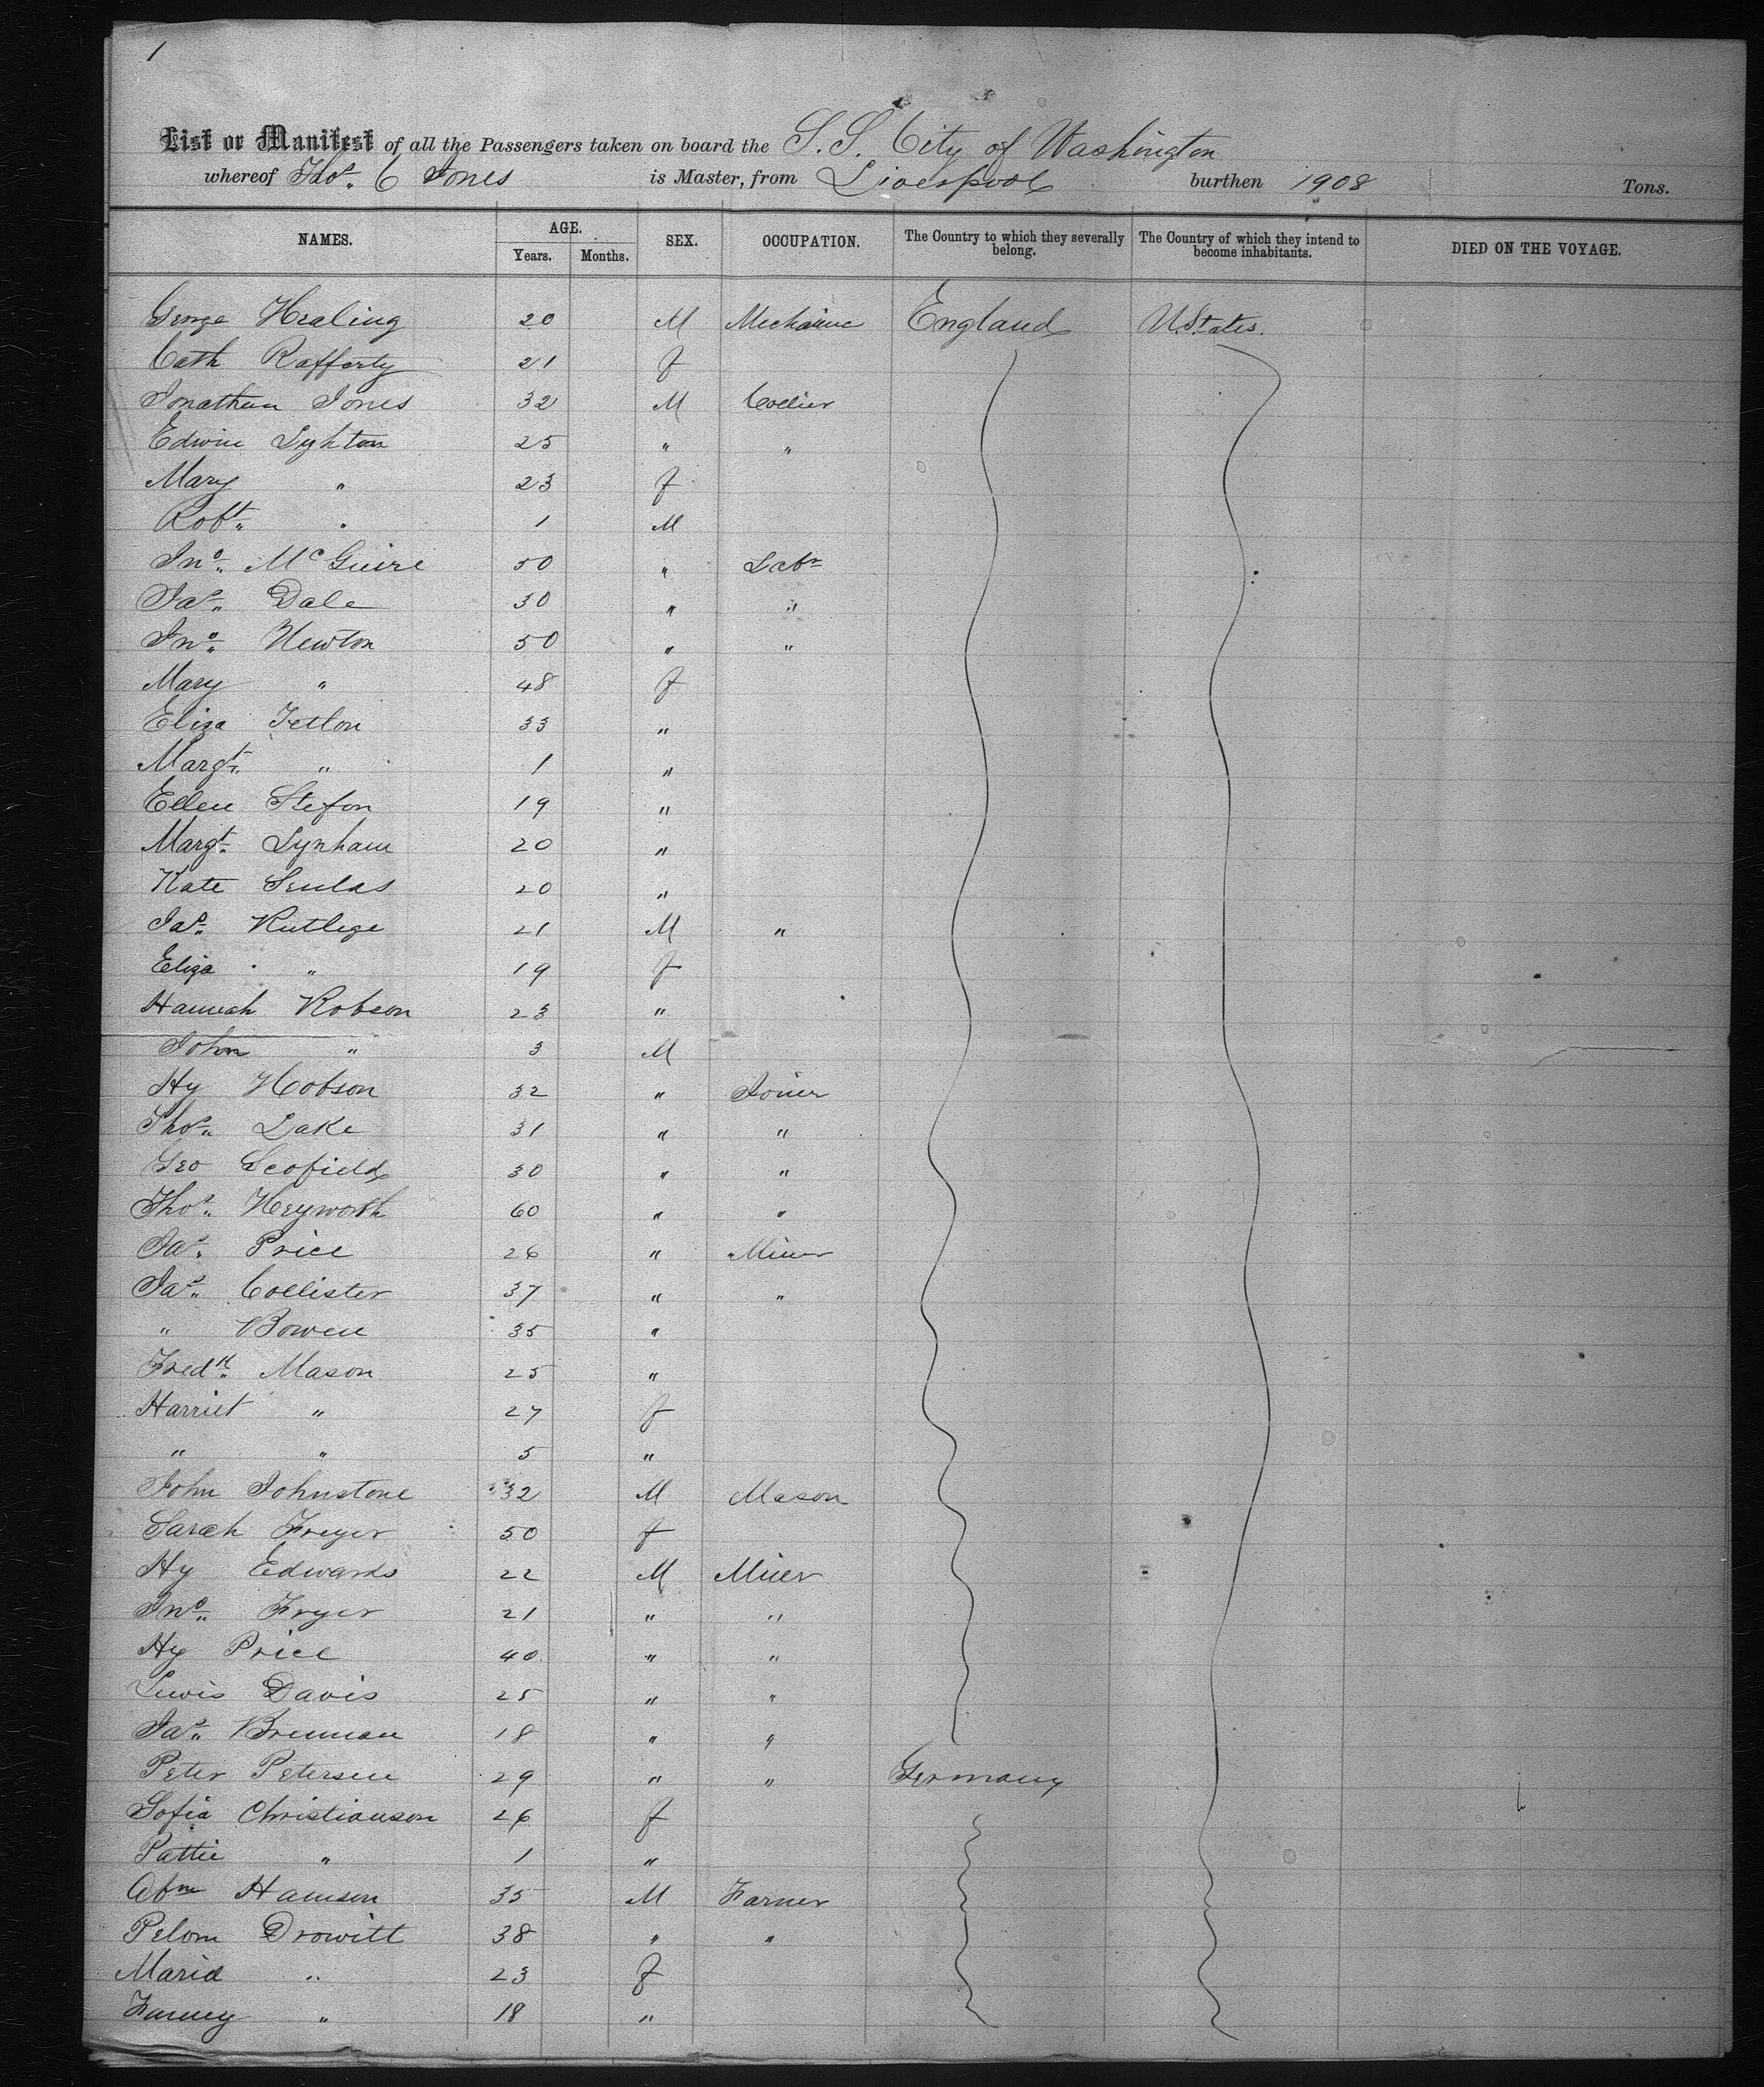 1
List or Manifest of all the Passengers taken on board the S.S. City of Washington
whereof Thos. C Jones is Master, from Liverpool burthen 1908 Tons.
NAMES. AGE. SEX. OCCUPATION. The Country to which they severally belong. The Country of which they intend to become inhabitants. DIED ON THE VOYAGE.
Years. Months.
George Healing 20 M Mechanic England U.States.
Cath Rafferty 21 f
Jonathan Jones 32 M Collier
Edwin Lyhton 25 " "
Mary " 23 f
Robt. " 1 M
Jno. McGuire 50 " Labr
Jas. Dale 30 " "
Jno. Newton 50 " "
Mary " 48 f
Eliza Tetlon 33 "
Margt. " 1 "
Ellen Stefon 19 "
Margt. Lynham 20 "
Kate 20 "
Jas. Rutlege 21 M "
Eliza " 19 f
Hannah Robson 23 "
John " 3 M
Hy Hobson 32 " Joiner
Thos. Lake 31 " "
Geo Scofield 30 " "
Thos. Heyworth 60 " "
Jas. Price 26 " Miner
Jas. Collister 37 " "
" Bowen 35 "
Fredk. Mason 25 "
Harriet " 27 f
" " 5 "
John Johnstone 32 M Mason
Sarah Freyer 50 f
Hy Edwards 22 M Miner
Jno. Fryer 21 " "
Hy Price 40 " "
Lewis Davis 25 " "
Jas. Brennan 18 " "
Peter Petersen 29 " " Germany
Sofia Christianson 26 f
Pattie " 1 "
Abm Hamson 35 M Farmer
Pelom Drowitt 38 " "
Maria " 23 f
Fanney " 18 "